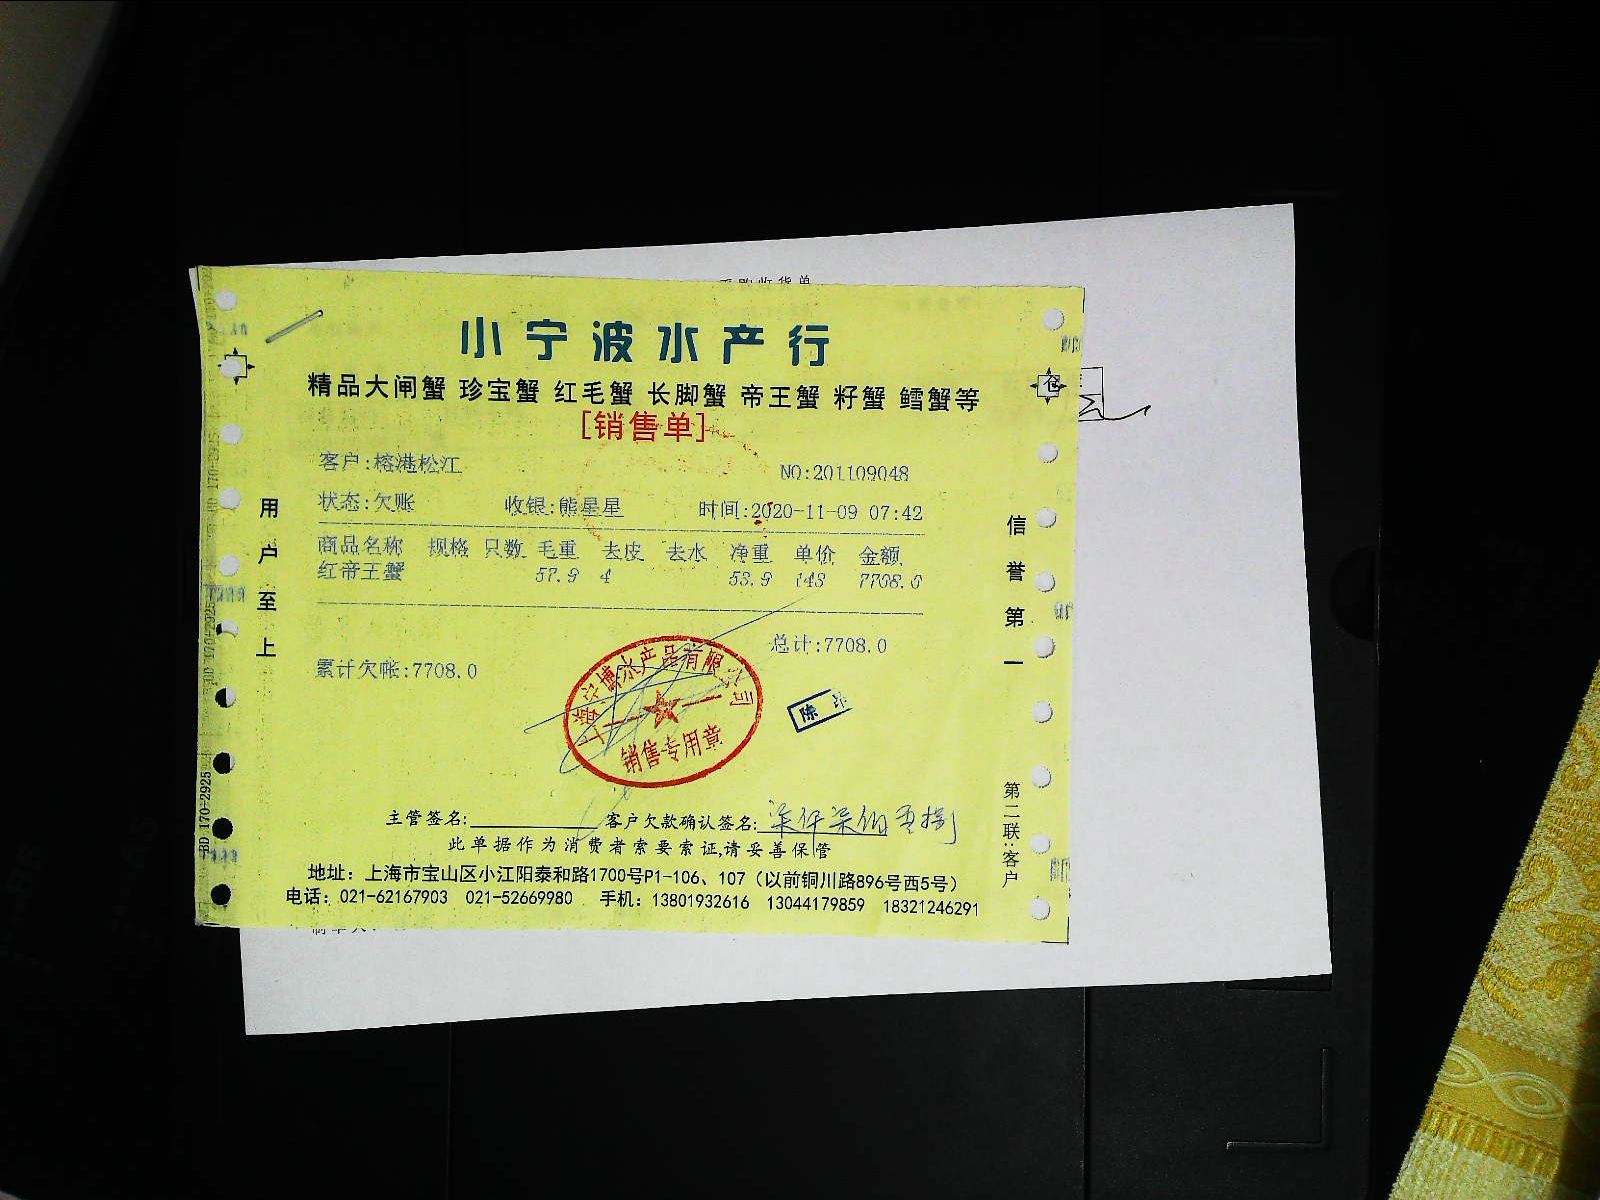 采购收货单
小宁波水产行
精品大闸蟹 珍宝蟹 红毛蟹 长脚蟹 帝王蟹 籽蟹 鳕蟹等
[销售单]
客户:榕港松江
NO:201109048
状态:欠账 收银:熊星星 时间:2020-11-09 07:42
商品名称 规格 只数 毛重 去皮 去水 净重 单价 金额
红帝王蟹 57.9 4 53.9 143 7708.0
总计:7708.0
累计欠帐:7708.0
上海宁博水产品有限公司
销售专用章
陈
主管签名: 客户欠款确认签名:柒仟柒佰零捌
此单据作为消费者索要索证,请妥善保管
地址：上海市宝山区小江阳泰和路1700号P1-106、107（以前铜川路896号西5号）
电话：021-62167903 021-52669980 手机：13801932616 13044179859 18321246291
用户至上
信誉第一
第二联:客户
BD 170-2925
仓
制单人: